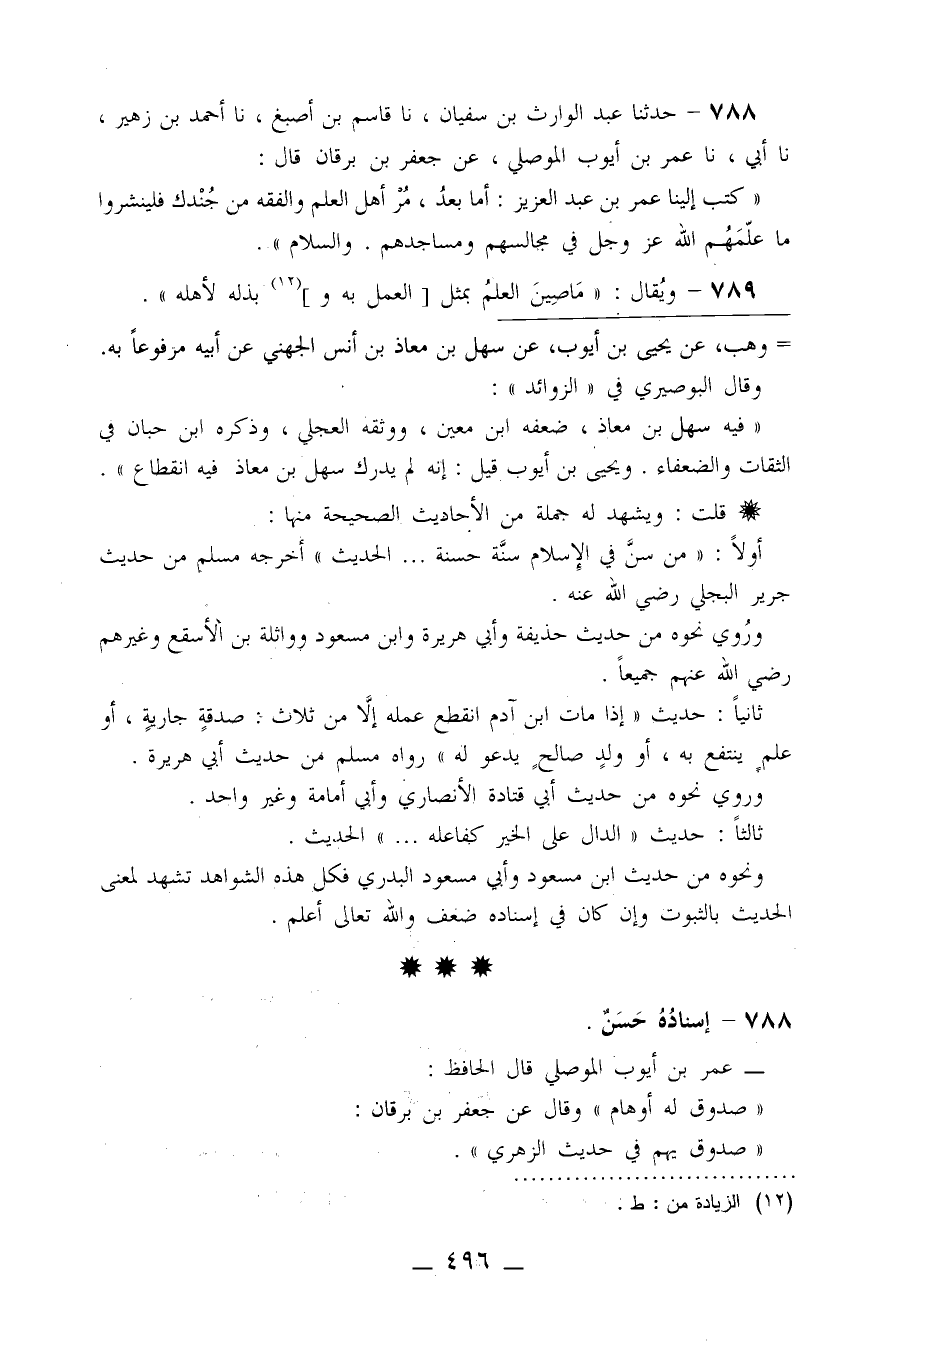 ٧٨٨ – حدثنا عبد الوارث بن سفيان ، نا قاسم بن أصبغ ، نا أحمد بن زهير ،
نا أبي ، نا عمر بن أيوب الموصلي ، عن جعفر بن برقان قال :
« كتب إلينا عمر بن عبد العزيز : أما بعدُ ، مُرْ أهل العلم والفقه من جُنْدك فلينشروا
ما علّمَهُم الله عز وجل في مجالسهم ومساجدهم . والسلام » .
٧٨٩ – ويُقال : « مَاصِينَ العلمُ بمثل [ العمل به و ](١٢) بذله لأهله » .
= وهب، عن يحيى بن أيوب، عن سهل بن معاذ بن أنس الجهني عن أبيه مرفوعاً به.
وقال البوصيري في « الزوائد » :
« فيه سهل بن معاذ ، ضعفه ابن معين ، ووثقه العجلي ، وذكره ابن حبان في
الثقات والضعفاء . ويحيى بن أيوب قيل : إنه لم يدرك سهل بن معاذ فيه انقطاع » .
✹ قلت : ويشهد له جملة من الأحاديث الصحيحة منها :
أولاً : « من سنَّ في الإسلام سنَّة حسنة ... الحديث » أخرجه مسلم من حديث
جرير البجلي رضي الله عنه .
ورُوي نحوه من حديث حذيفة وأبي هريرة وابن مسعود وواثلة بن الأسقع وغيرهم
رضي الله عنهم جميعاً .
ثانياً : حديث « إذا مات ابن آدم انقطع عمله إلَّا من ثلاث : صدقةٍ جاريةٍ ، أو
علمٍ ينتفع به ، أو ولدٍ صالحٍ يدعو له » رواه مسلم من حديث أبي هريرة .
وروي نحوه من حديث أبي قتادة الأنصاري وأبي أمامة وغير واحد .
ثالثاً : حديث « الدال على الخير كفاعله ... » الحديث .
ونحوه من حديث ابن مسعود وأبي مسعود البدري فكل هذه الشواهد تشهد لمعنى
الحديث بالثبوت وإن كان في إسناده ضعف والله تعالى أعلم .
✹ ✹ ✹
٧٨٨ – إسنادُهُ حَسَنٌ .
— عمر بن أيوب الموصلي قال الحافظ :
« صدوق له أوهام » وقال عن جعفر بن برقان :
« صدوق يهم في حديث الزهري » .
(١٢) الزيادة من : ط .
— ٤٩٦ —